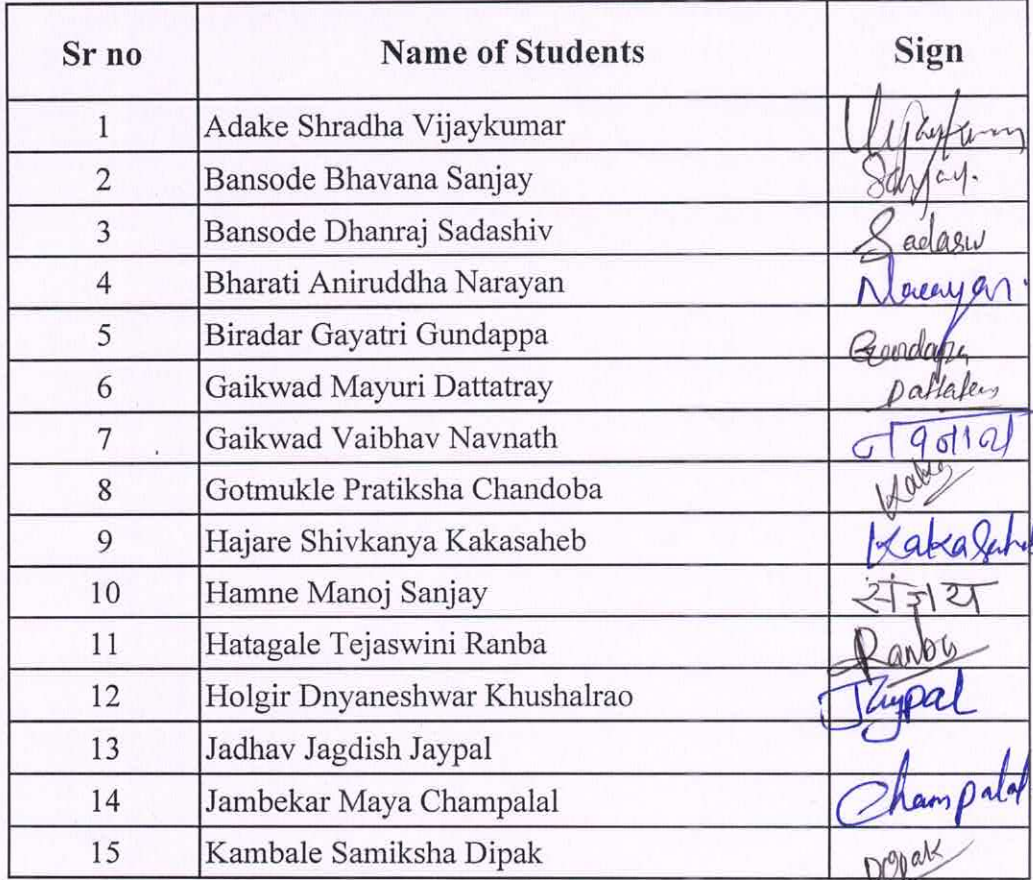 Sr no Name of Students Sign
1 Adake Shradha Vijaykumar Vijaykumar
2 Bansode Bhavana Sanjay Sanjay.
3 Bansode Dhanraj Sadashiv Sadasiv
4 Bharati Aniruddha Narayan Narayan.
5 Biradar Gayatri Gundappa Gundappa
6 Gaikwad Mayuri Dattatray
7 Gaikwad Vaibhav Navnath नवनाथ
8 Gotmukle Pratiksha Chandoba
9 Hajare Shivkanya Kakasaheb Kakasaheb
10 Hamne Manoj Sanjay संजय
11 Hatagale Tejaswini Ranba Ranba
12 Holgir Dnyaneshwar Khushalrao Jaypal
13 Jadhav Jagdish Jaypal
14 Jambekar Maya Champalal Champalal
15 Kambale Samiksha Dipak Dipak